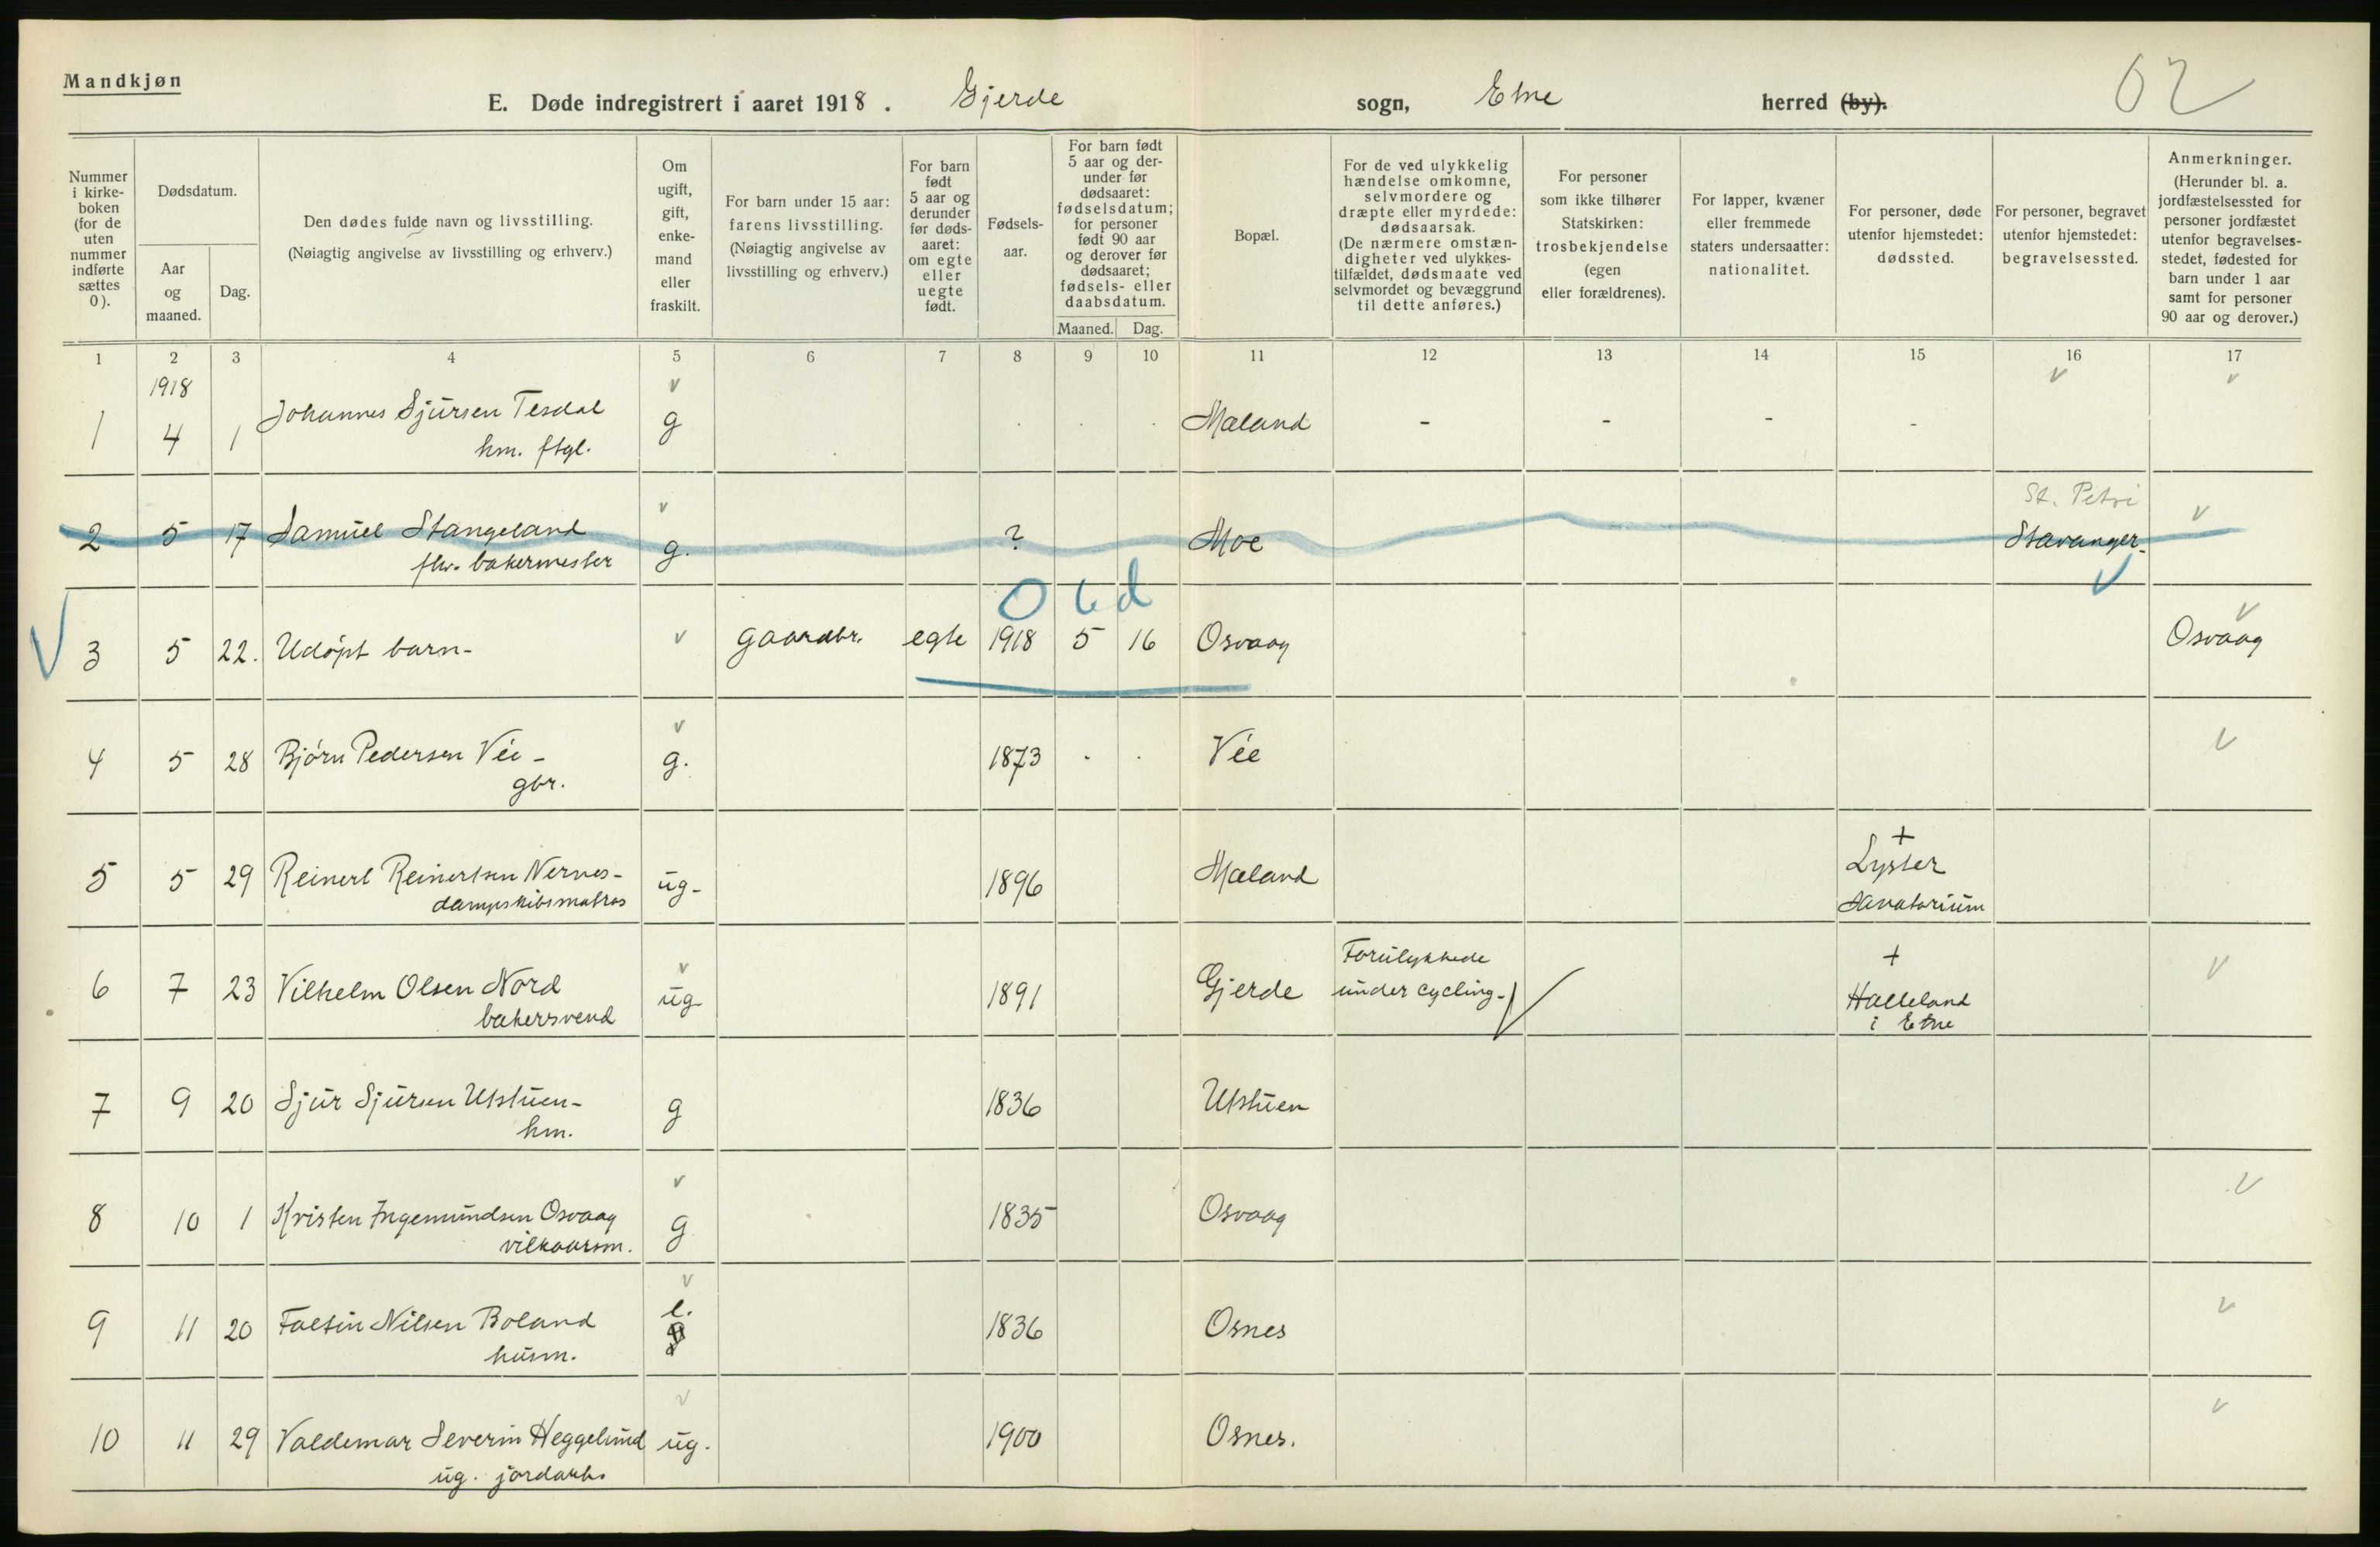 Mandkjøn
E. Døde indregistrert i aaret 1918. Gjerde sogn, Etne herred (by).
62
Nummer i kirkeboken (for de uten nummer indførte sættes 0).
Dødsdatum.
Aar og maaned.
Dag.
Den dødes fulde navn og livsstilling.
(Nøiagtig angivelse av livsstilling og erhverv.)
Om ugift, gift, enkemand eller fraskilt.
For barn under 15 aar: farens livsstilling.
(Nøiagtig angivelse av livsstilling og erhverv.)
For barn født 5 aar og derunder før dødsaaret: om egte eller uegte født.
Fødselsaar.
For barn født 5 aar og derunder før dødsaaret: fødselsdatum; for personer født 90 aar og derover før dødsaaret; fødsels- eller daabsdatum.
Maaned. Dag.
Bopæl.
For de ved ulykkelig hændelse omkomne, selvmordere og dræpte eller myrdede: dødsaarsak.
(De nærmere omstændigheter ved ulykkestilfældet, dødsmaate ved selvmordet og bevæggrund til dette anføres.)
For personer som ikke tilhører Statskirken: trosbekjendelse (egen eller forældrenes).
For lapper, kvæner eller fremmede staters undersaatter: nationalitet.
For personer, døde utenfor hjemstedet: dødssted.
For personer, begravet utenfor hjemstedet: begravelsessted.
Anmerkninger.
(Herunder bl. a. jordfæstelsessted for personer jordfæstet utenfor begravelsesstedet, fødested for barn under 1 aar samt for personer 90 aar og derover.)
1 2 3 4 5 6 7 8 9 10 11 12 13 14 15 16 17
1918
1 4 1 Johannes Sjursen Tesdal g Mæland - - - -
hm. ftgl.
St. Petri
2 5 17 Samuel Stangeland g. ? Moe Stavanger.
fhv. bakermester
0 6 d
3 5 22. Udøpt barn- gaardbr. egte 1918 5 16 Osvaag Osvaag
4 5 28 Bjørn Pedersen Vée - g. 1873 Vée
gbr.
5 5 29 Reinert Reinertsen Nernes- ug- 1896 Mæland + Lyster
dampskibsmatros Sanatorium
6 7 23 Vilhelm Olsen Nord ug- 1891 Gjerde Forulykkede under cycling- + Halleland
bakersvend i Etne
7 9 20 Sjur Sjursen Utstuen- g 1836 Utstuen
hm.
8 10 1 Kristen Ingemundsen Osvaag g 1835 Osvaag
vilkaarsm.
9 11 20 Faltin Nilsen Boland e. 1836 Osnes
husm.
10 11 29 Valdemar Severin Heggelund ug. 1900 Osnes.
ug. jordarb.